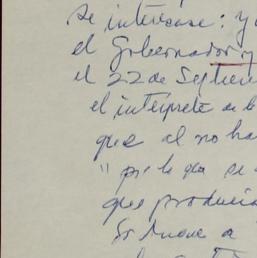 se interesase: y
el Gobernador y
el 22 de Septiem
el intérprete
que al no ha
" por la que se
que producía
a